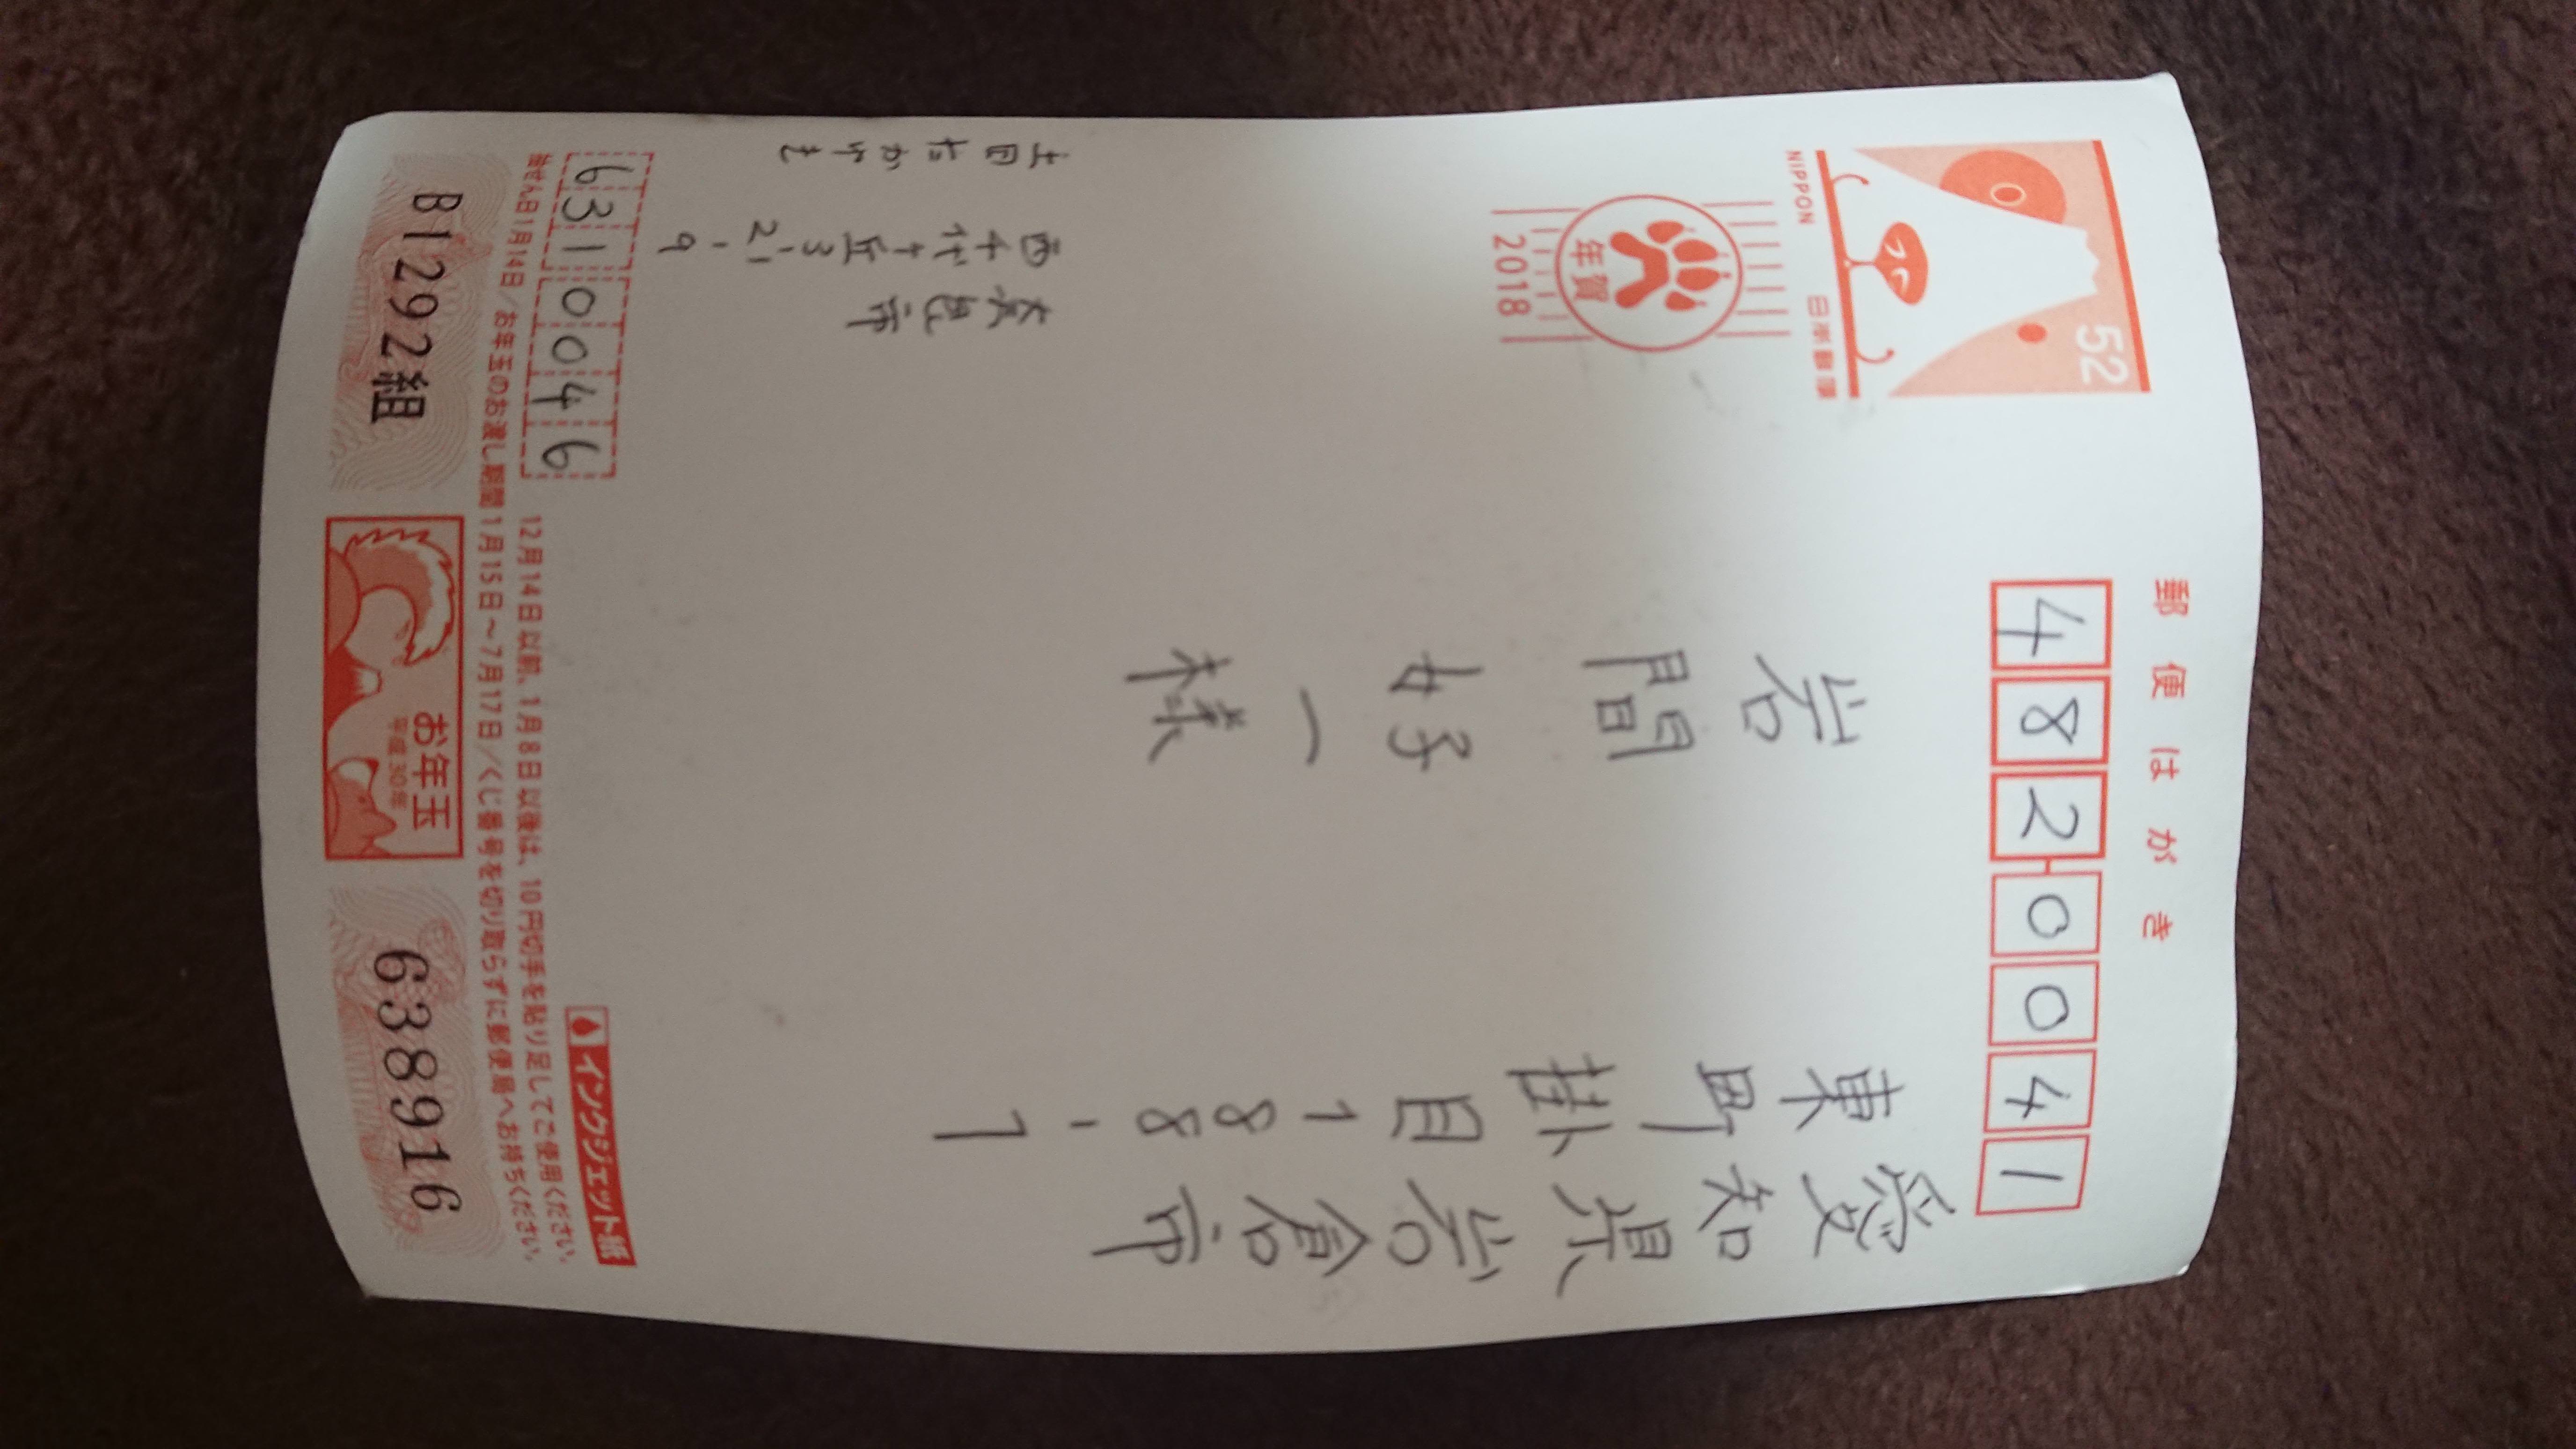 郵便はがき
482-0041
52
NIPPON
日本郵便
年賀
2018
愛知県岩倉市
東町掛目188-1
岩間好一様
奈良市
西千代ヶ丘3-21-9
吉田たかゆき
6310046
インクジェット紙
12月14日以前、1月8日以後は、10円切手を貼り足してご使用ください。
抽せん日1月14日/お年玉のお渡し期間1月15日~7月17日/くじ番号を切り取らずに郵便局へお持ちください。
B1292組
お年玉
平成30年
638916